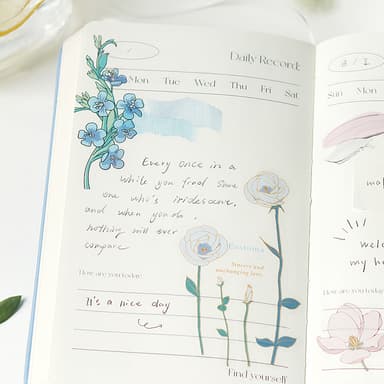 Daily Record:
Mon Tue Wed Thu Fri Sat
Every once in a
while you find some
one who's iridescent,
and when you do,
nothing will ever
compare
Sincere and
unchanging love.
How are you today:
It's a nice day
Find yourself
Sun Mon
welco
my h
How are you today: